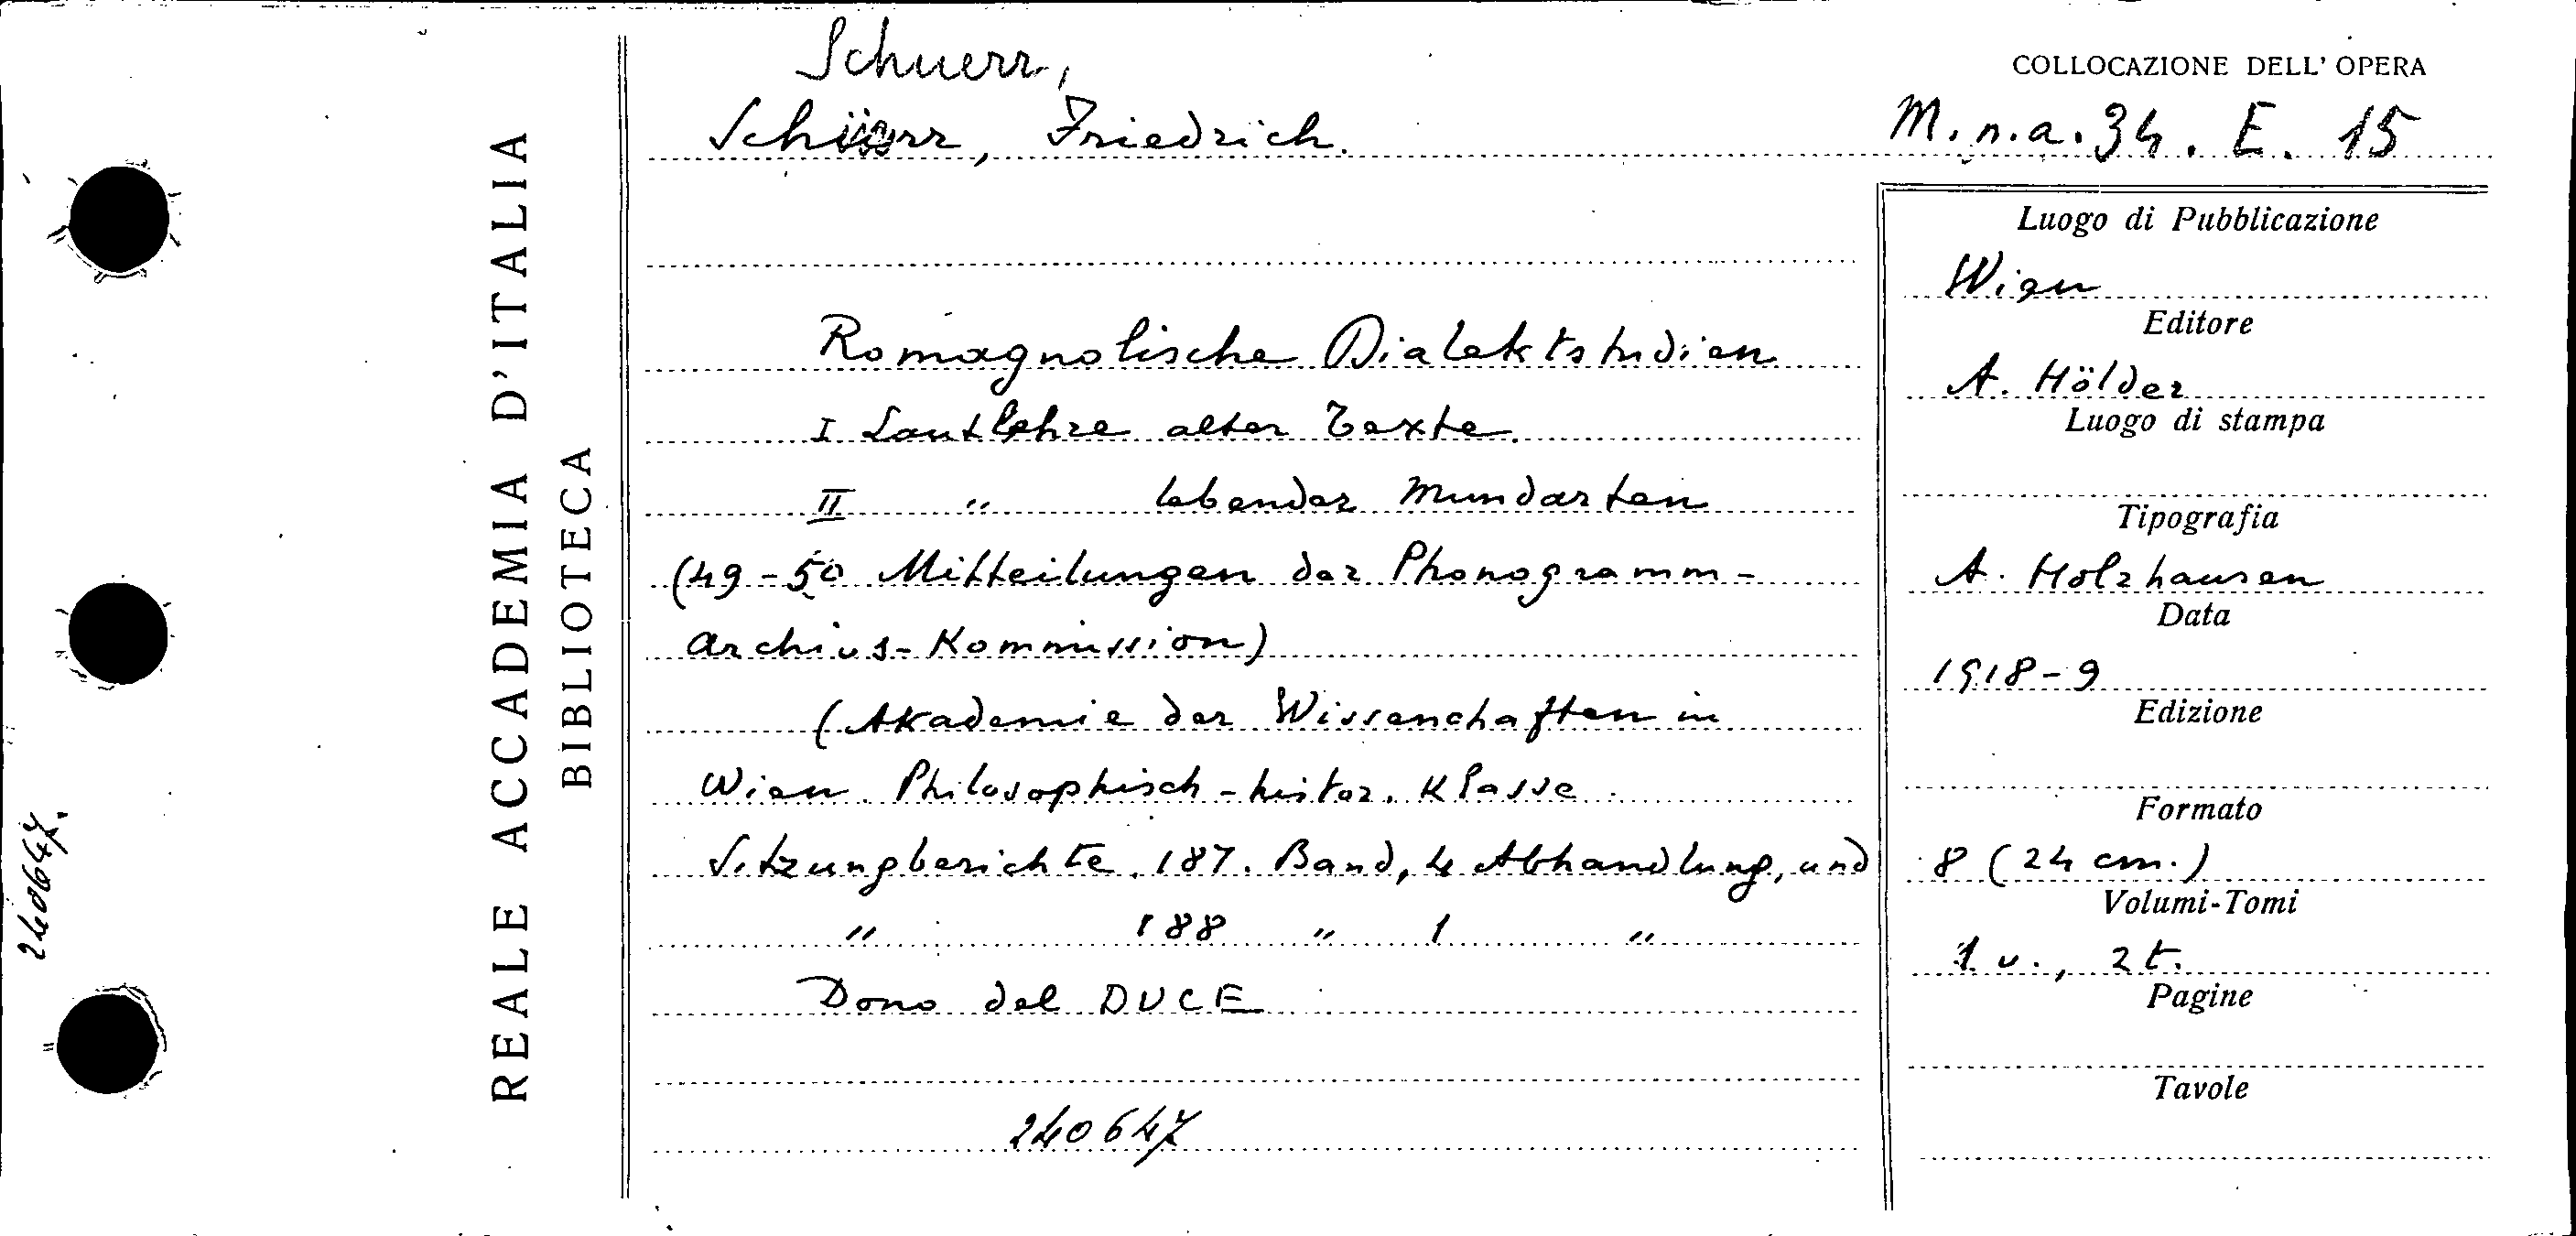 Schuerr,
Schürr, Friedrich.
COLLOCAZIONE DELL' OPERA
M.n.a.34.E.15
REALE ACCADEMIA D'ITALIA
BIBLIOTECA
240647.
Romagnolische Dialektstudien
I Lautlehre alter Texte.
II " lebender Mundarten
(49-50 Mitteilungen der Phonogramm-
Archivs-Kommission)
(Akademie der Wissenchaften in
Wien. Philosophisch-histor. Klasse.
Sitzungberichte. 187. Band, 4 Abhandlung, und
" 188 " 1 "
Dono del DUCE
240647
Luogo di Pubblicazione
Wien
Editore
A. Hölder
Luogo di stampa
Tipografia
A. Holzhausen
Data
1918-9
Edizione
Formato
8 (24 cm.)
Volumi-Tomi
1 v., 2 t.
Pagine
Tavole